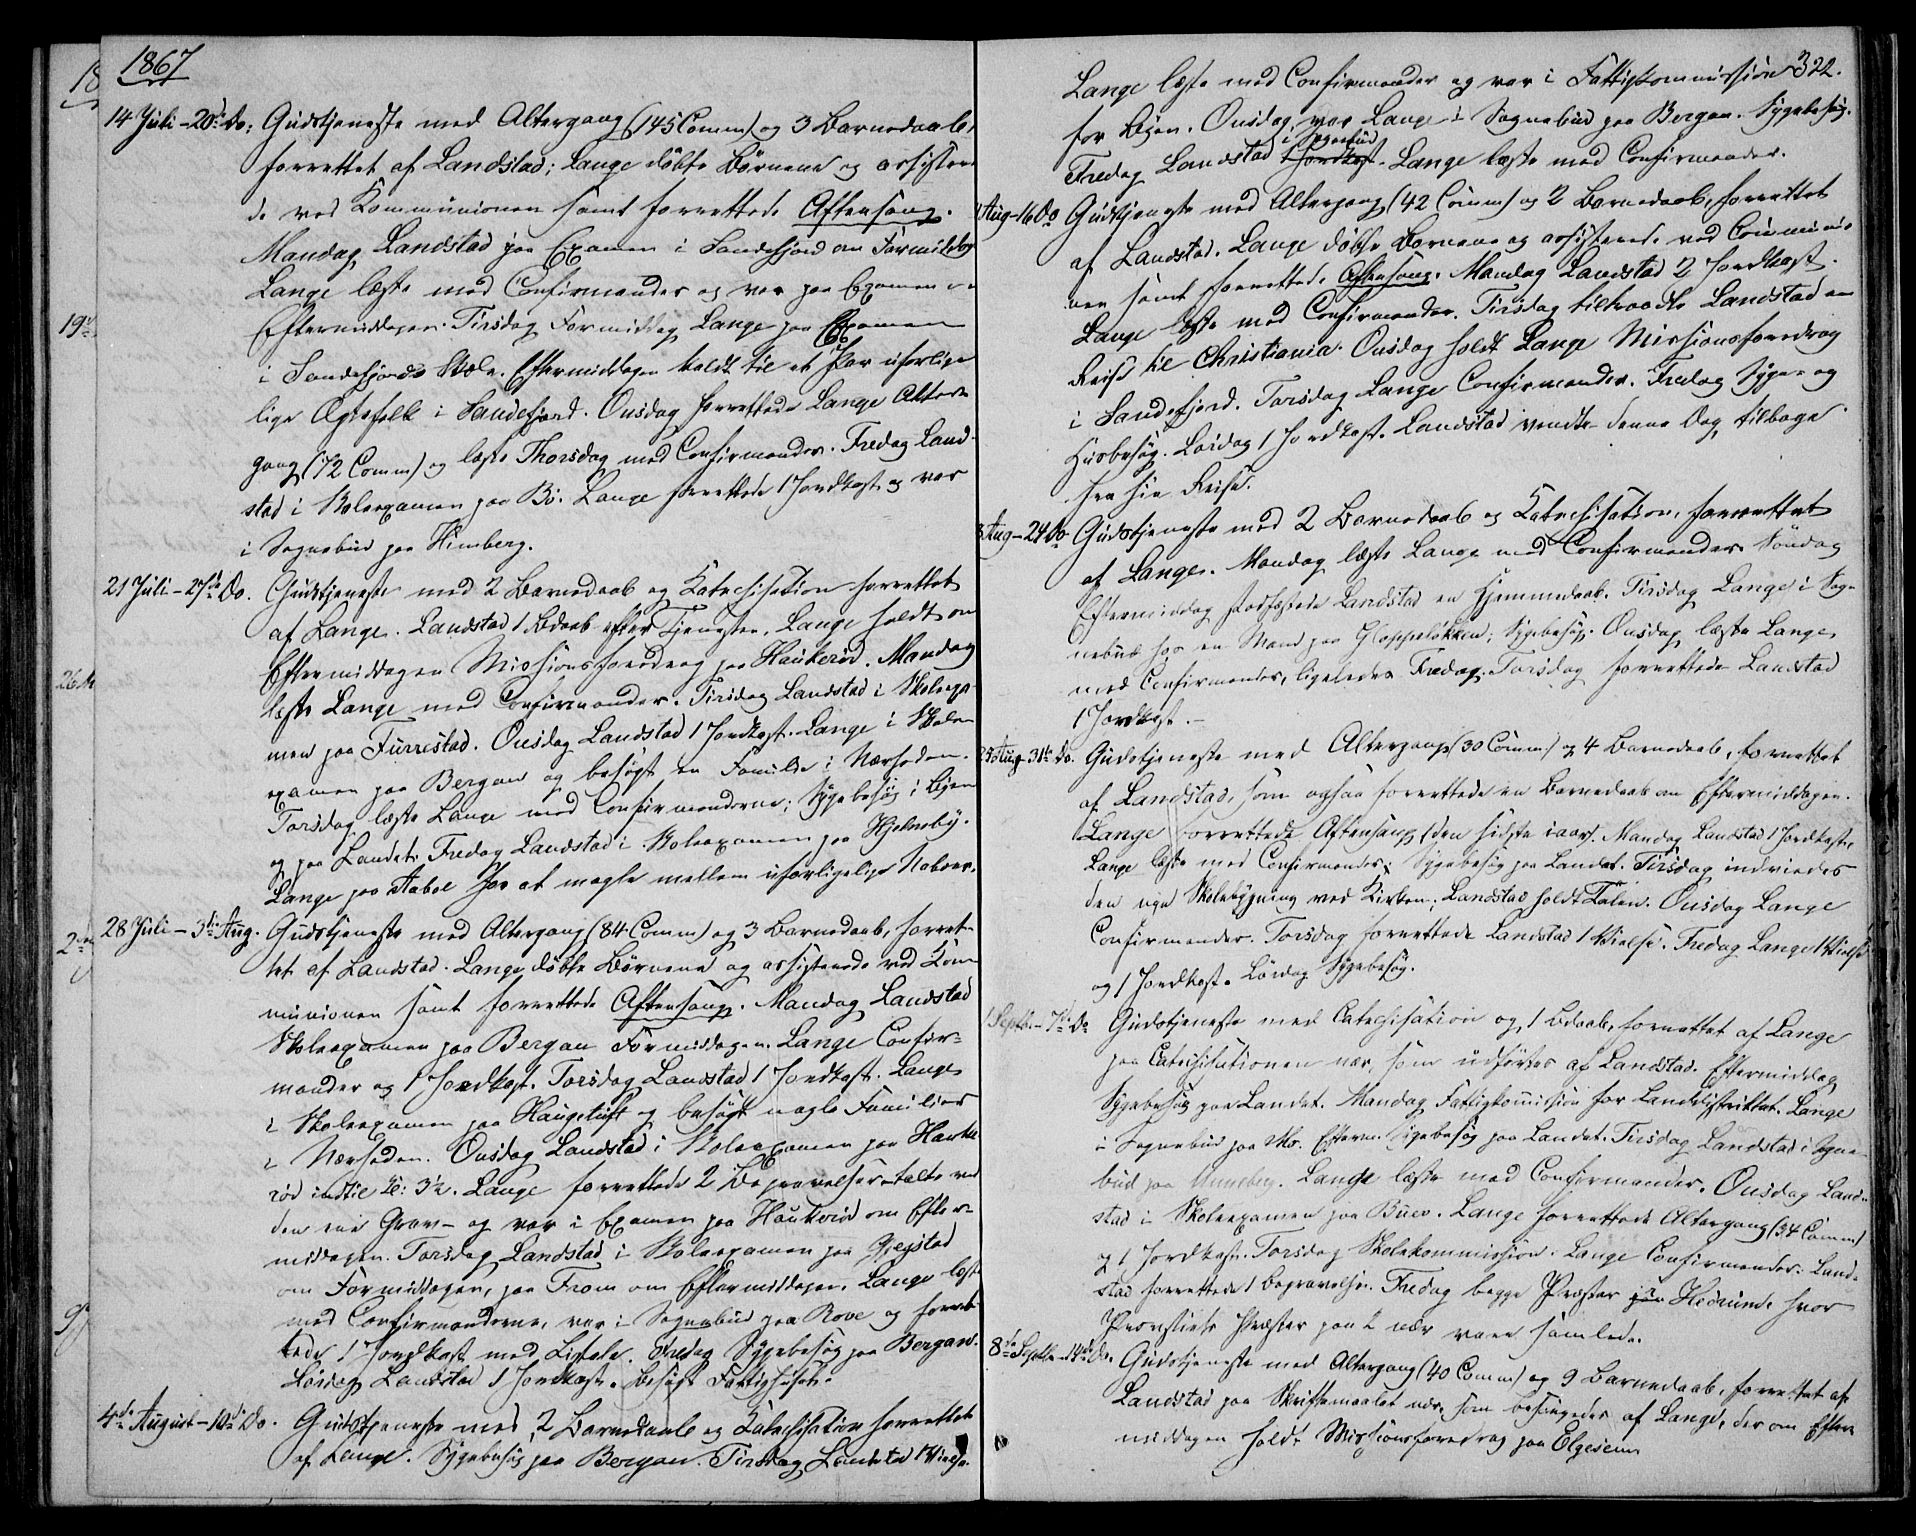 1867
14 Juli – 20de Do: Gudstjeneste med Altergang (145 Comm) og 3 Barnedaab,
forrettet af Landstad; Lange döbte Börnene og assistere-
de ved Kommunionen samt forrettede Aftensang.
Mandag Landstad paa Examen i Sandefjord om Formiddag
Lange læste med Confirmander og var paa Examen
Eftermiddagen. Tirsdag Formiddag Lange paa Examen
i Sandefjords Skole. Eftermiddagen holdt til et Par uforlige
lige Ægtefolk i Sandefjord. Onsdag forrettede Lange Alter-
gang (72 Comm) og læste Thorsdag med Confirmander. Fredag Land-
stad i Skoleexamen paa Bö. Lange forrettede 1 Jordkast og var
i Sognebud paa Himberg.
21 Juli – 27de Do. Gudstjeneste med 2 Barnedaab og Katechisation forrettet
af Lange. Landstad 1 Bdaab efter Tjenesten. Lange holdt om
Eftermiddagen Missionsforedrag paa Haukeröd. Mandag
læste Lange med Confirmander. Tirsdag Landstad i Skoleexa-
men paa Furrestad. Onsdag Landstad 1 Jordkast. Lange i Skole-
examen paa Bergan og besögt en Familie i Nærheden.
Torsdag læste Lange med Confirmanderne; Sygebesög i Byen
og paa Landet. Fredag Landstad i Skoleexamen paa Hjelmeby.
Lange paa Aabol for at mægle mellem uforligelige Naboer.
28 Juli – 3die Aug. Gudstjeneste med Altergang (84 Comm) og 3 Barnedaab, forret-
tet af Landstad. Lange döbte Börnene og assisterede ved Kom-
munionen samt forrettede Aftensang. Mandag Landstad
Skoleexamen paa Bergan Formiddagen. Lange Confir-
mander og 1 Jordkast. Torsdag Landstad 1 Jordkast. Lange
i Skoleexamen paa Haugetuft og besögt nogle Familier
i Nærheden. Onsdag Landstad i Skoleexamen paa Hauke
röd indtil Kl: 3½. Lange forrettede 2 Begravelser – talte ved
den ene Grav – og var i Examen paa Haukeröd om Efter-
middagen. Torsdag Landstad i Skoleexamen paa Gjegstad
om Formiddagen, paa From om Eftermiddagen. Lange læste
med Confirmanderne, var i Sognebud paa Rove og forret-
tede 1 Jordkast med Ligtale. Fredag Sygebesög paa Bergan.
Löidag Landstad 1 Jordkast. Besögt Fattighuset.
4de August – 10de Do. Gudstjeneste med 2 Barnedaab og Katechisation forrettet
af Lange. Sygebesög paa Bergan. Tirsdag Landstad 1 Vielse.
322.
Lange læste med Confirmander og var i Fattigkommission
for Byen. Onsdag var Lange i Sognebud paa Bergan. Sygebesög.
Fredag Landstad i Sognebud. Lange læste med Confirmander.
Aug – 16 Do Gudstjeneste med Altergang (42 Comm) og 2 Barnedaab, forrettet
af Landstad. Lange döbte Börnene og assisterede ved Commmunio-
nen samt forrettede Aftensang. Mandag Landstad 2 Jordkast.
Lange læste med Confirmander. Tirsdag tiltraadte Landstad en
Reise til Christiania. Onsdag holdt Lange Missionsforedrag
i Sandefjord. Torsdag Lange Confirmander. Fredag Syge- og
Husbesög. Löidag 1 Jordkast. Landstad vendte denne Dag tilbage
fra sin Reise.
Aug – 24 Do Gudstjeneste med 2 Barnedaab og Katechisation, forrettet
af Lange. Mandag læste Lange med Confirmander. Söndag
Eftermiddag stadfæstede Landstad en Hjemmedaab. Tirsdag Lange i Sog-
nebud hos en Mand paa Gloppelökken; Sygebesög. Onsdag læste Lange
med Confirmander, ligeledes Fredag. Torsdag forrettede Landstad
1 Jordkast. –
25 Aug – 31te Do. Gudstjeneste med Altergang (30 Comm) og 4 Barnedaab, forrettet
af Landstad, som ogsaa forrettede en Barnedaab om Eftermiddagen.
Lange forrettede Aftensang (den sidste iaar). Mandag Landstad 1 Jordkast,
Lange læste med Confirmander; Sygebesög paa Landet. Tirsdag indviedes
den nye Skolebygning ved Kirken; Landstad holdt Talen. Onsdag Lange
Confirmander. Torsdag forrettede Landstad 1 Vielse. Fredag Lange 1 Vielse
og 1 Jordkast. Löidag Sygebesög.
1 Septb. – 7de Do Gudstjeneste med Catechisation og 1 Bdaab, forrettet af Lange
paa Catechisationen nær, som udförtes af Landstad. Eftermiddag
Sygebesög paa Landet. Mandag Fattigkomission for Landdistriktet. Lange
i Sognebud paa Mo. Efterm. Sygebesög paa Landet. Tirsdag Landstad i Sogne-
bud paa Unneberg. Lange læste med Confirmander. Onsdag Land-
stad i Skoleexamen paa Buer. Lange forrettede Altergang (34 Comm)
og 1 Jordkast. Torsdag Skolekommission. Lange Confirmander. Land-
stad forrettede 1 Begravelse. Fredag begge Præster paa Hedrum, hvor
Provstiets Præster paa 2 nær vare samlede.
8de Septbr – 14de Do. Gudstjeneste med Altergang (40 Comm) og 9 Barnedaab, forrettet af
Landstad paa Skriftemaalet nær, som besörgedes af Lange, der om Efter-
middagen holdt Missionsforedrag paa Elgesem